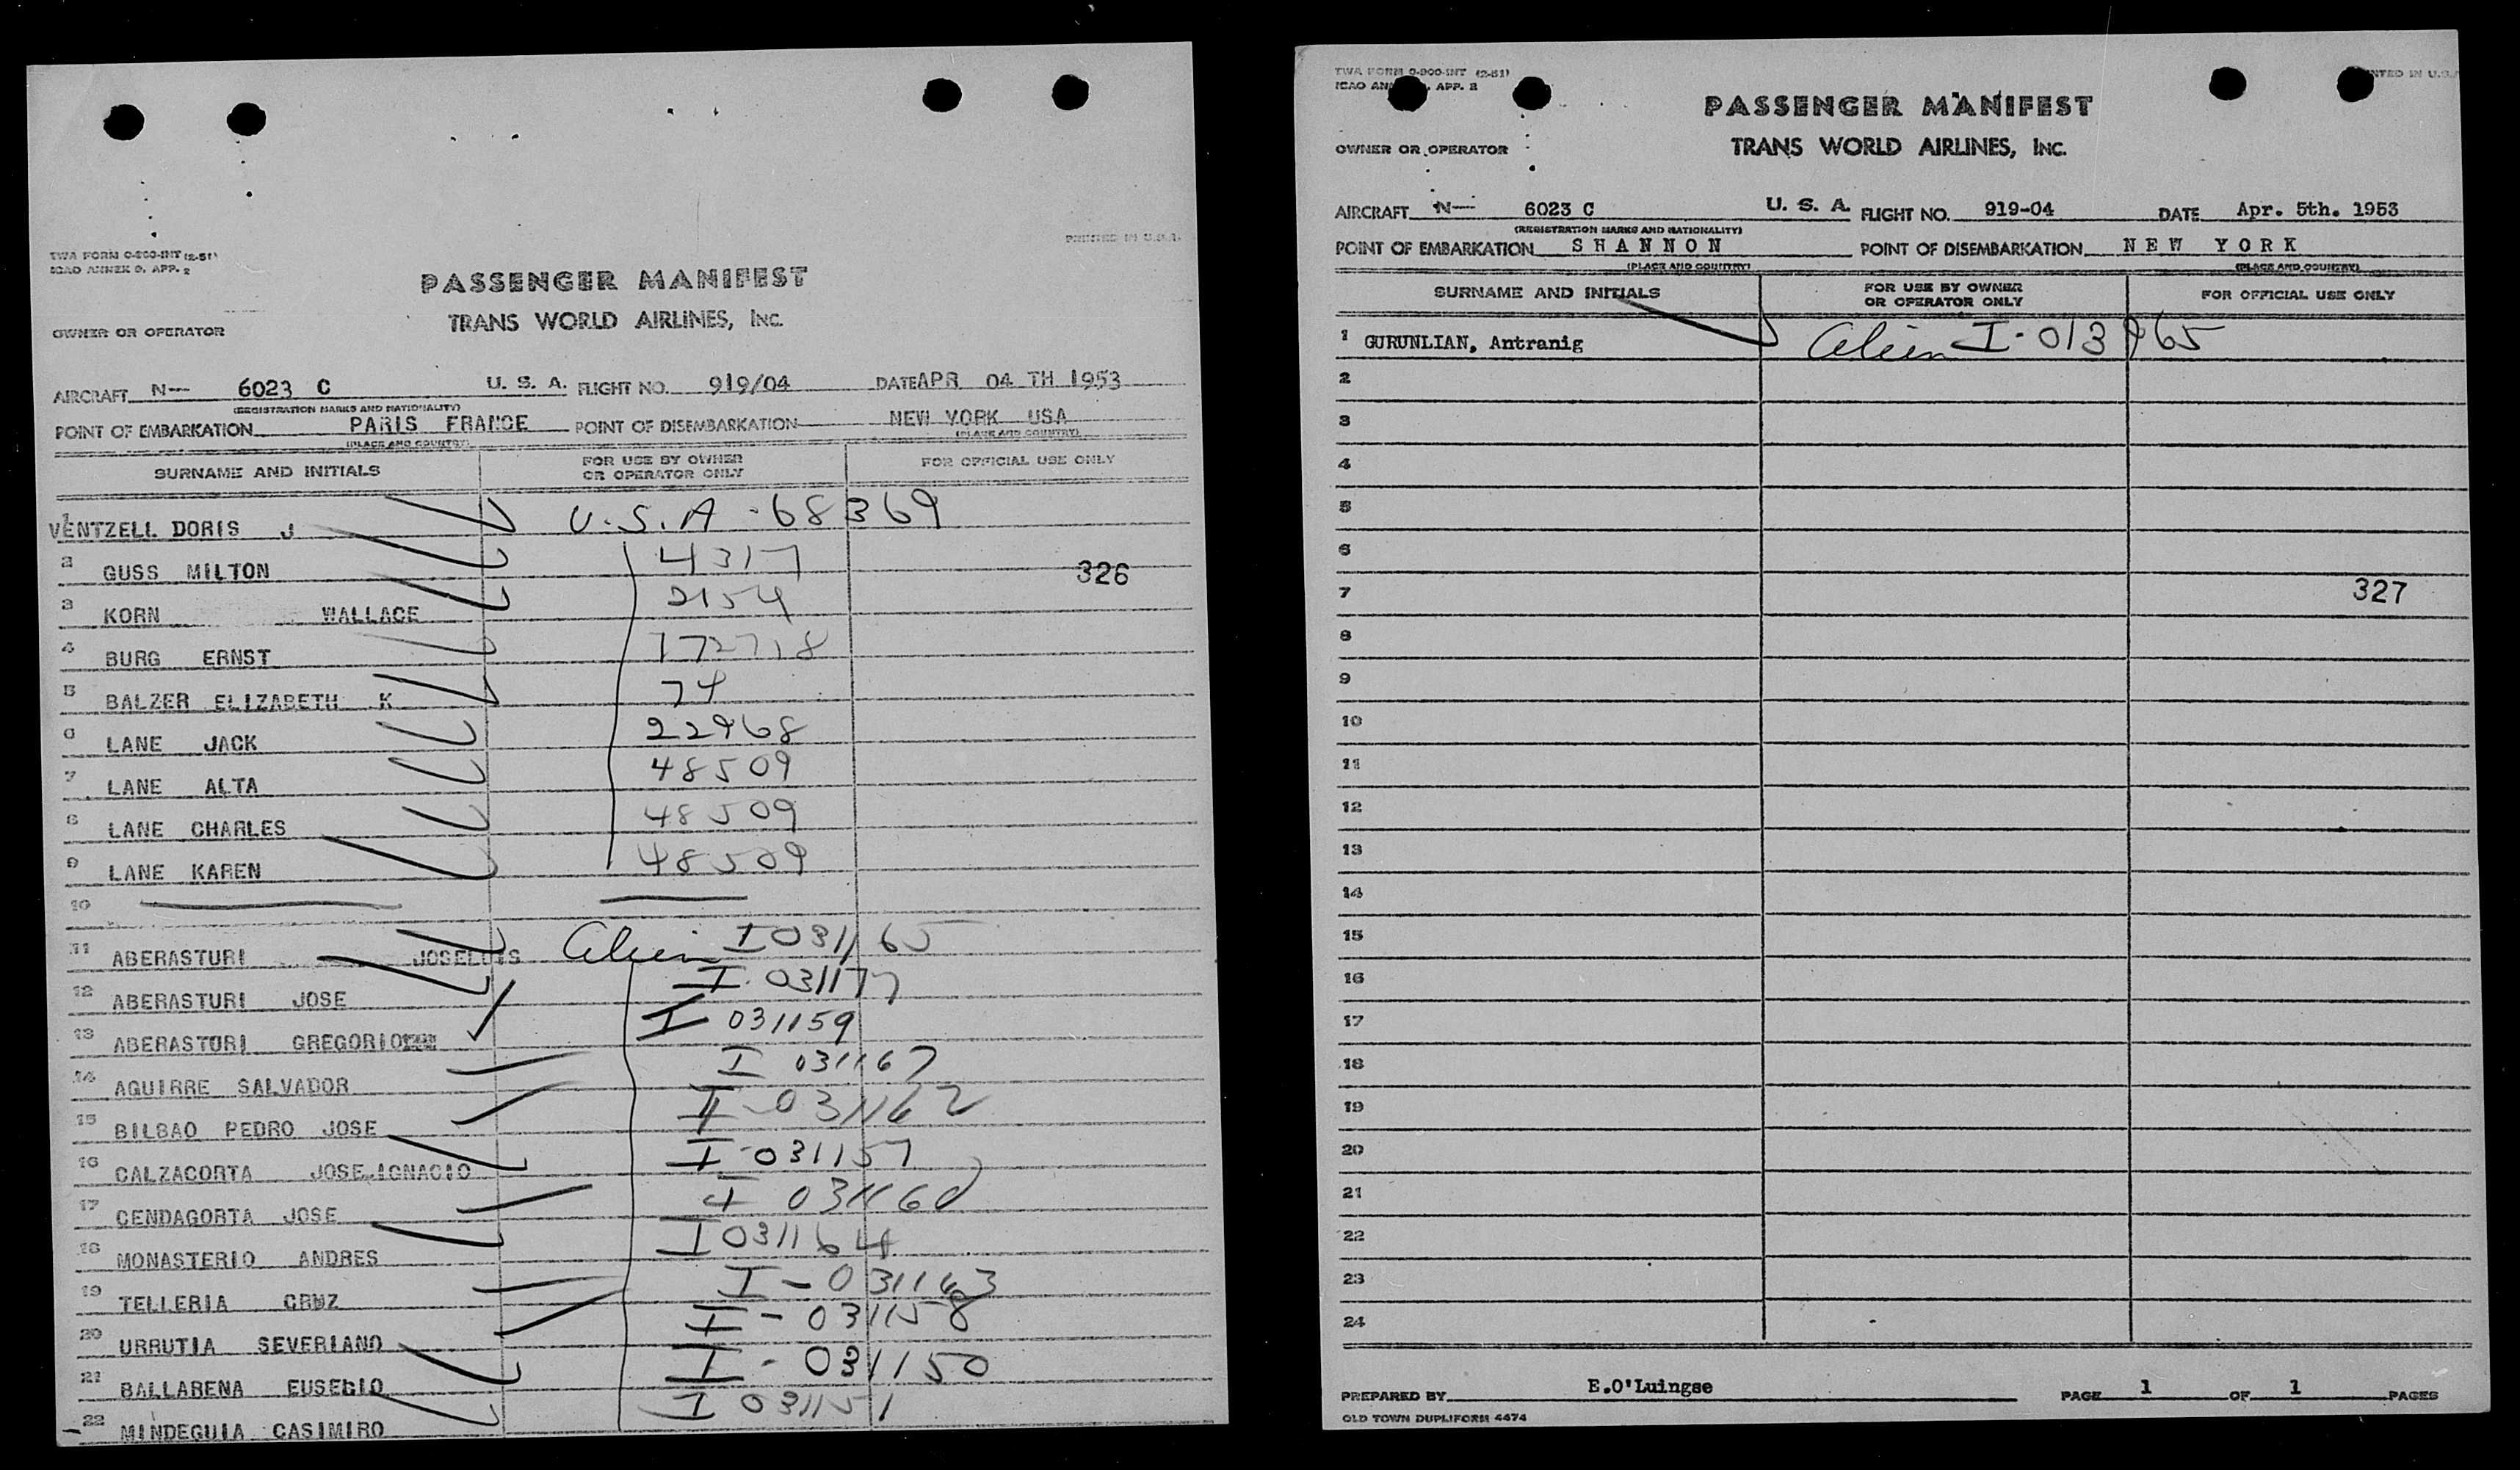 TWA FORM 0-900-INT (2-51)
ICAO ANNEX 9, APP. 2
PRINTED IN U.S.A.
PASSENGER MANIFEST
TRANS WORLD AIRLINES, Inc.
OWNER OR OPERATOR
AIRCRAFT N— 6023 C U. S. A. FLIGHT NO. 919/04 DATE APR 04 TH 1953
(REGISTRATION MARKS AND NATIONALITY)
POINT OF EMBARKATION PARIS FRANCE POINT OF DISEMBARKATION NEW YORK USA
(PLACE AND COUNTRY) (PLACE AND COUNTRY)
SURNAME AND INITIALS FOR USE BY OWNER OR OPERATOR ONLY FOR OFFICIAL USE ONLY
1 VENTZELL DORIS J U.S.A - 68369
2 GUSS MILTON 4317 326
3 KORN WALLACE 2154
4 BURG ERNST 172718
5 BALZER ELIZABETH K 74
6 LANE JACK 22968
7 LANE ALTA 48509
8 LANE CHARLES 48509
9 LANE KAREN 48509
10
11 ABERASTURI JOSELUIS Alien I 031165
12 ABERASTURI JOSE I 031177
13 ABERASTURI GREGORIO I 031159
14 AGUIRRE SALVADOR I 031167
15 BILBAO PEDRO JOSE I-031162
16 CALZACORTA JOSE IGNACIO I-031157
17 CENDAGORTA JOSE I 031160
18 MONASTERIO ANDRES I 031164
19 TELLERIA CRUZ I-031163
20 URRUTIA SEVERIANO I-031158
21 BALLARENA EUSEBIO I-031150
22 MINDEGUIA CASIMIRO I 031151
TWA FORM 0-900-INT (2-51)
ICAO ANN APP. 2
NTED IN U.S.A
PASSENGER MANIFEST
TRANS WORLD AIRLINES, Inc.
OWNER OR OPERATOR
AIRCRAFT N— 6023 C U. S. A. FLIGHT NO. 919-04 DATE Apr. 5th. 1953
(REGISTRATION MARKS AND NATIONALITY)
POINT OF EMBARKATION SHANNON POINT OF DISEMBARKATION NEW YORK
(PLACE AND COUNTRY) (PLACE AND COUNTRY)
SURNAME AND INITIALS FOR USE BY OWNER OR OPERATOR ONLY FOR OFFICIAL USE ONLY
1 GURUNLIAN, Antranig Alien I-013965
2
3
4
5
6
7 327
8
9
10
11
12
13
14
15
16
17
18
19
20
21
22
23
24
PREPARED BY E.O'Luingse PAGE 1 OF 1 PAGES
OLD TOWN DUPLIFORM 4474